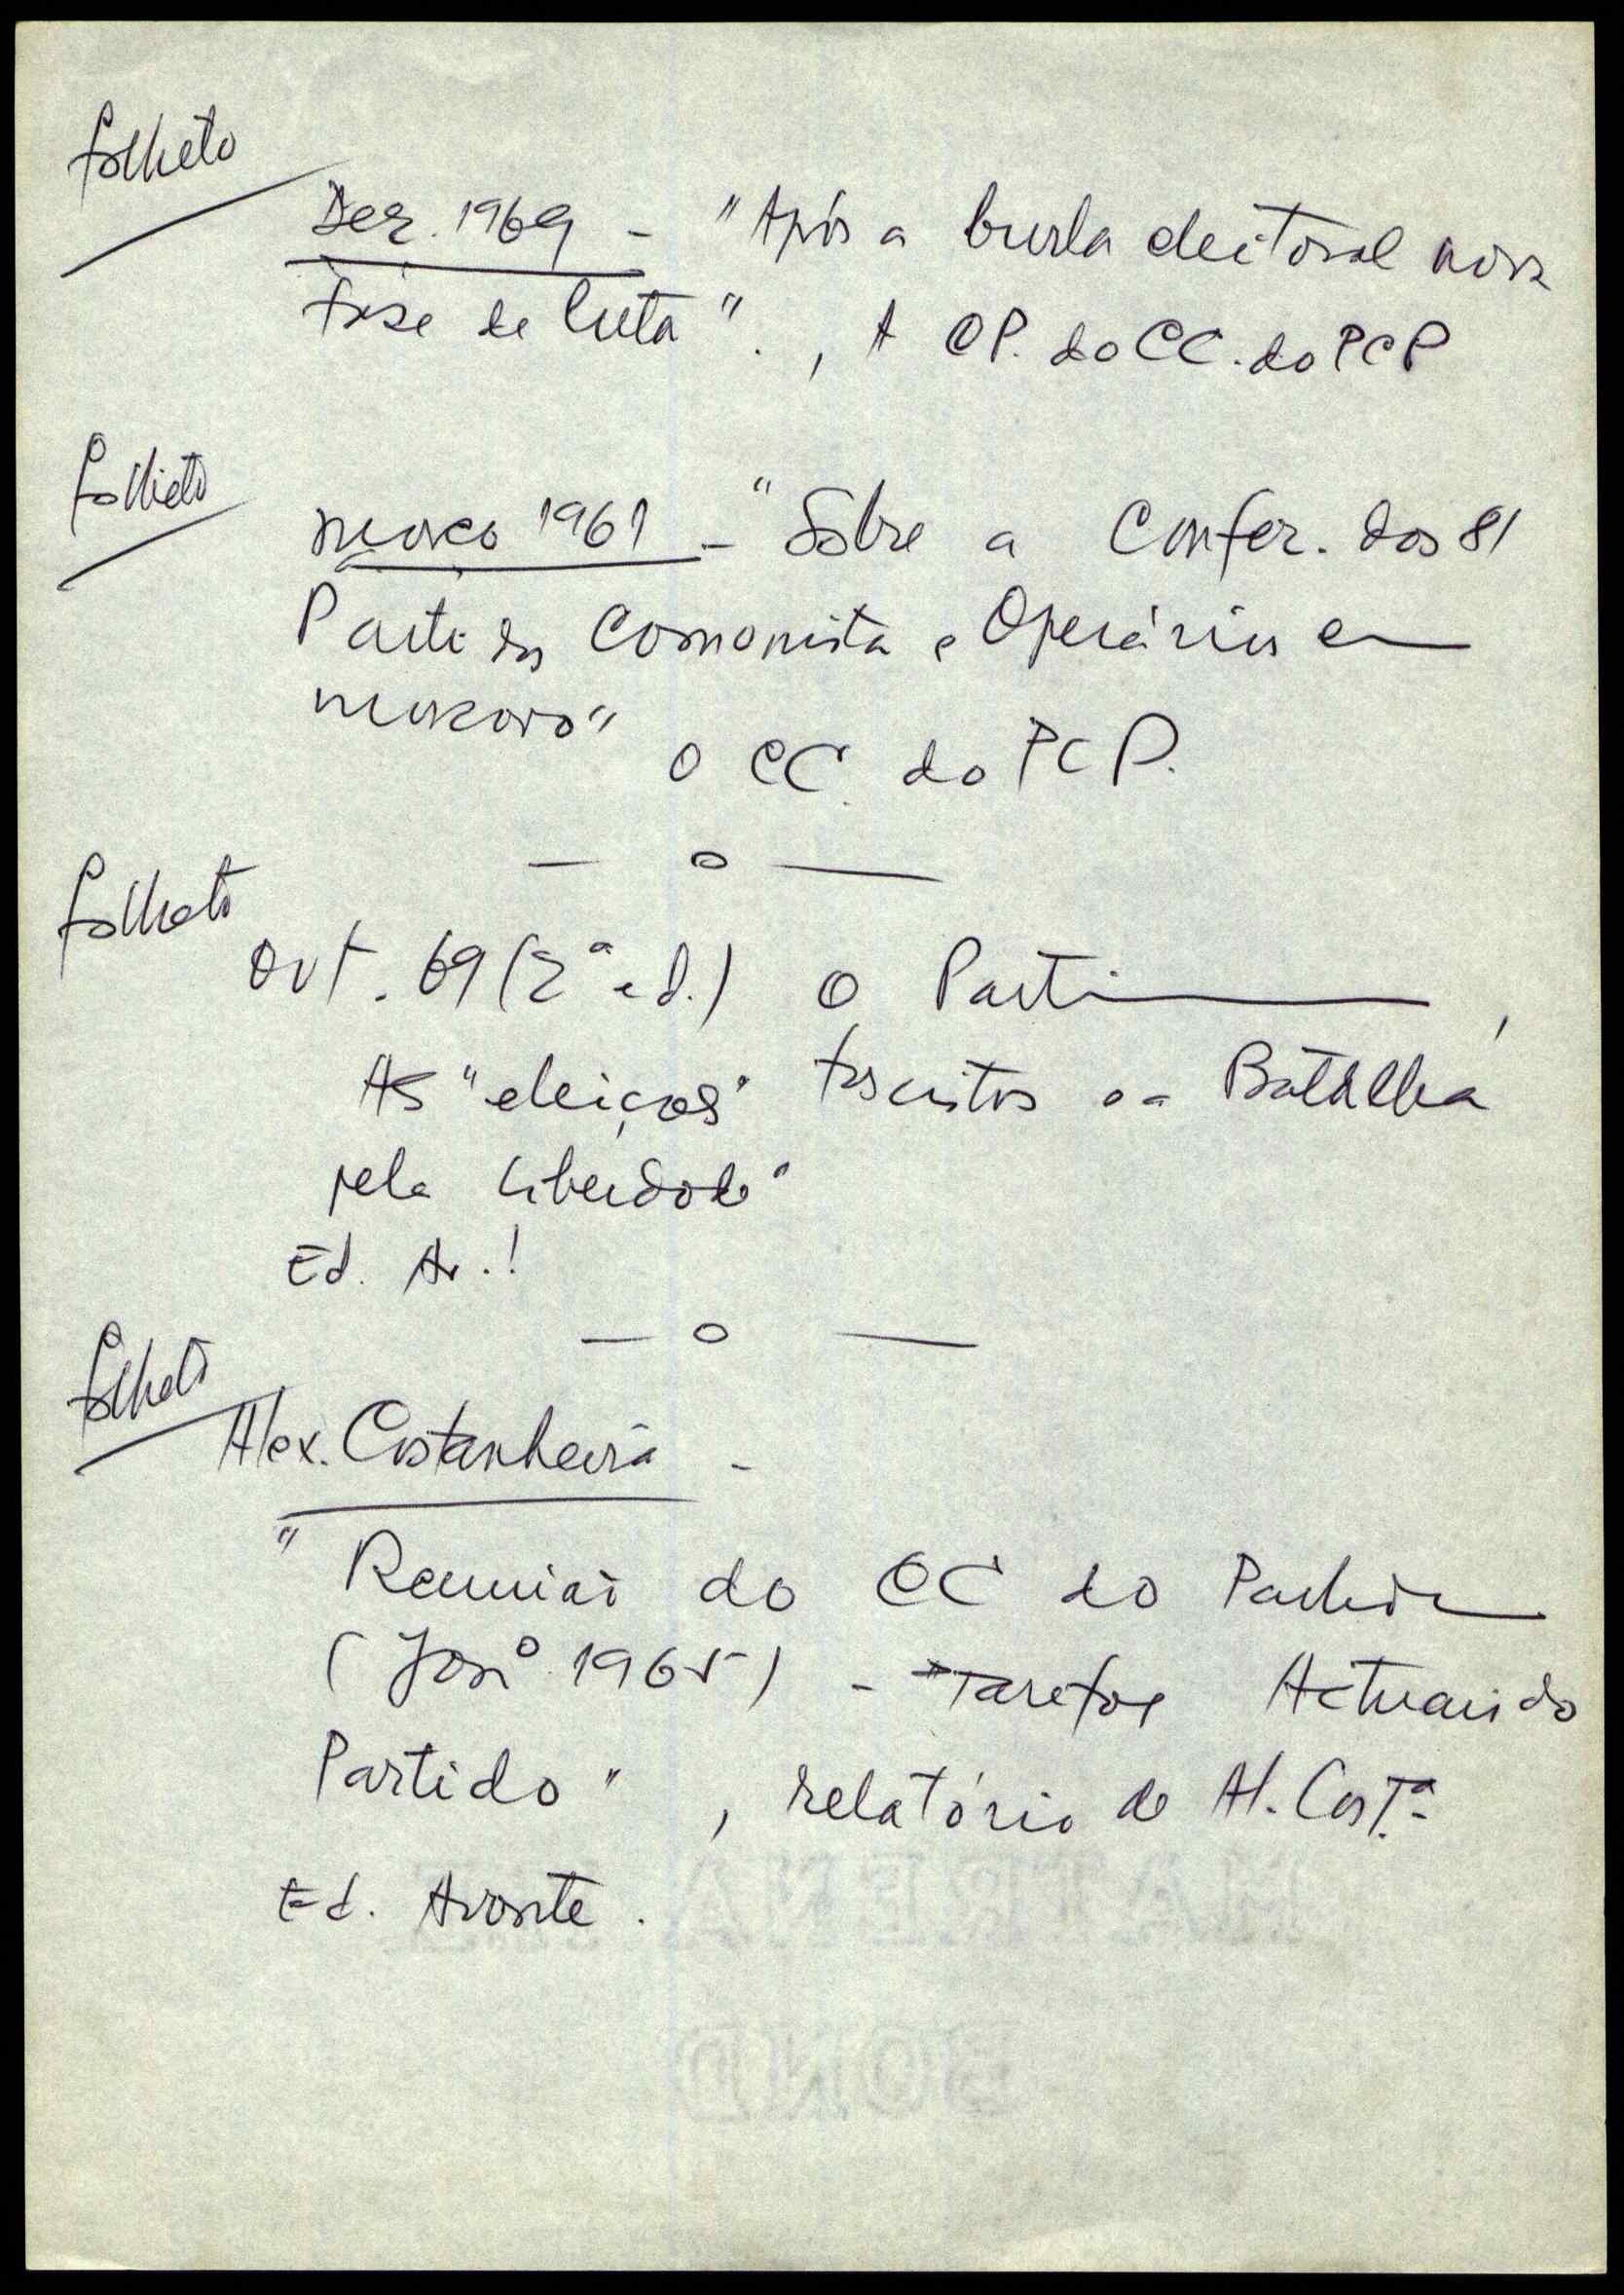 folheto
Dez. 1969 - "Após a burla eleitoral nova
fase de luta"., A CP. do CC. do PCP
folheto
Março 1961 - "Sobre a Confer. dos 81
Partidos Comunista e Operários em
Moscovo"
O CC. do PCP.
— o —
folheto
OUT. 69 (2ª ed.) O Parti———,
As "eleições" fascistas e a Batalha
pela Liberdade"
Ed. Av.!
— o —
folheto
Alex. Castanheira -
"Reunião do CC do Partido
(Janº 1965) - Tarefas Actuais do
Partido", relatório de Al. Cast.ª
Ed. Avante.
BOND